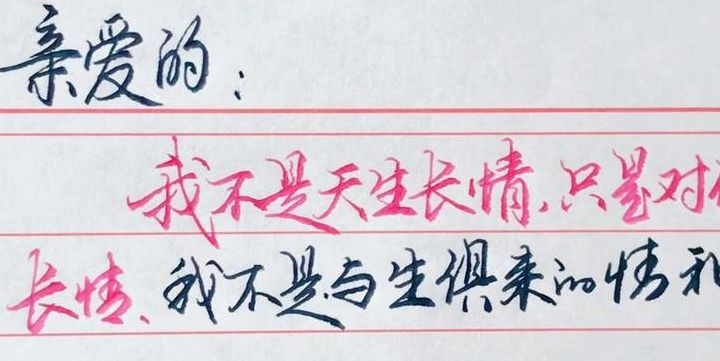 亲爱的：
我不是天生长情，只是对
长情、我不是与生俱来的情